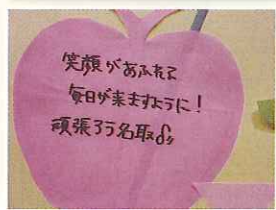 笑顔があふれる
毎日が来ますように!
頑張ろう名取